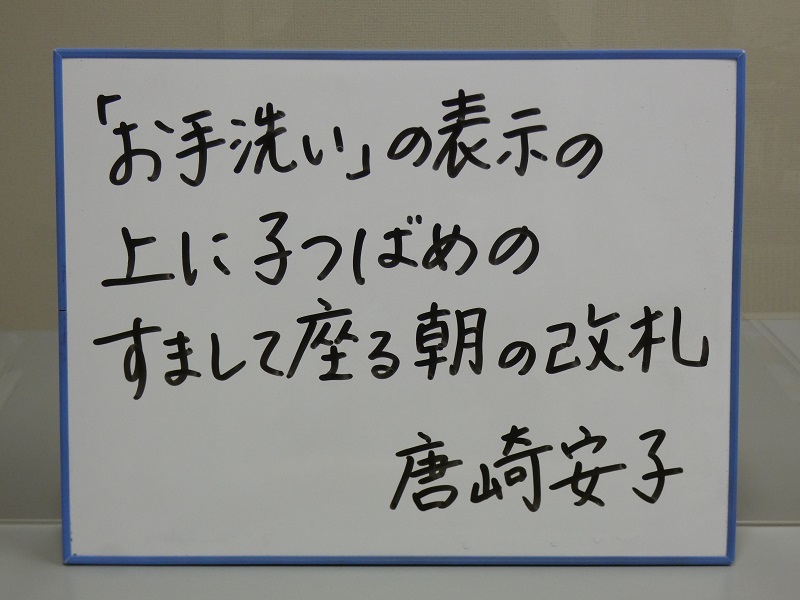 「お手洗い」の表示の
上に子つばめの
すまして座る朝の改札
唐崎安子